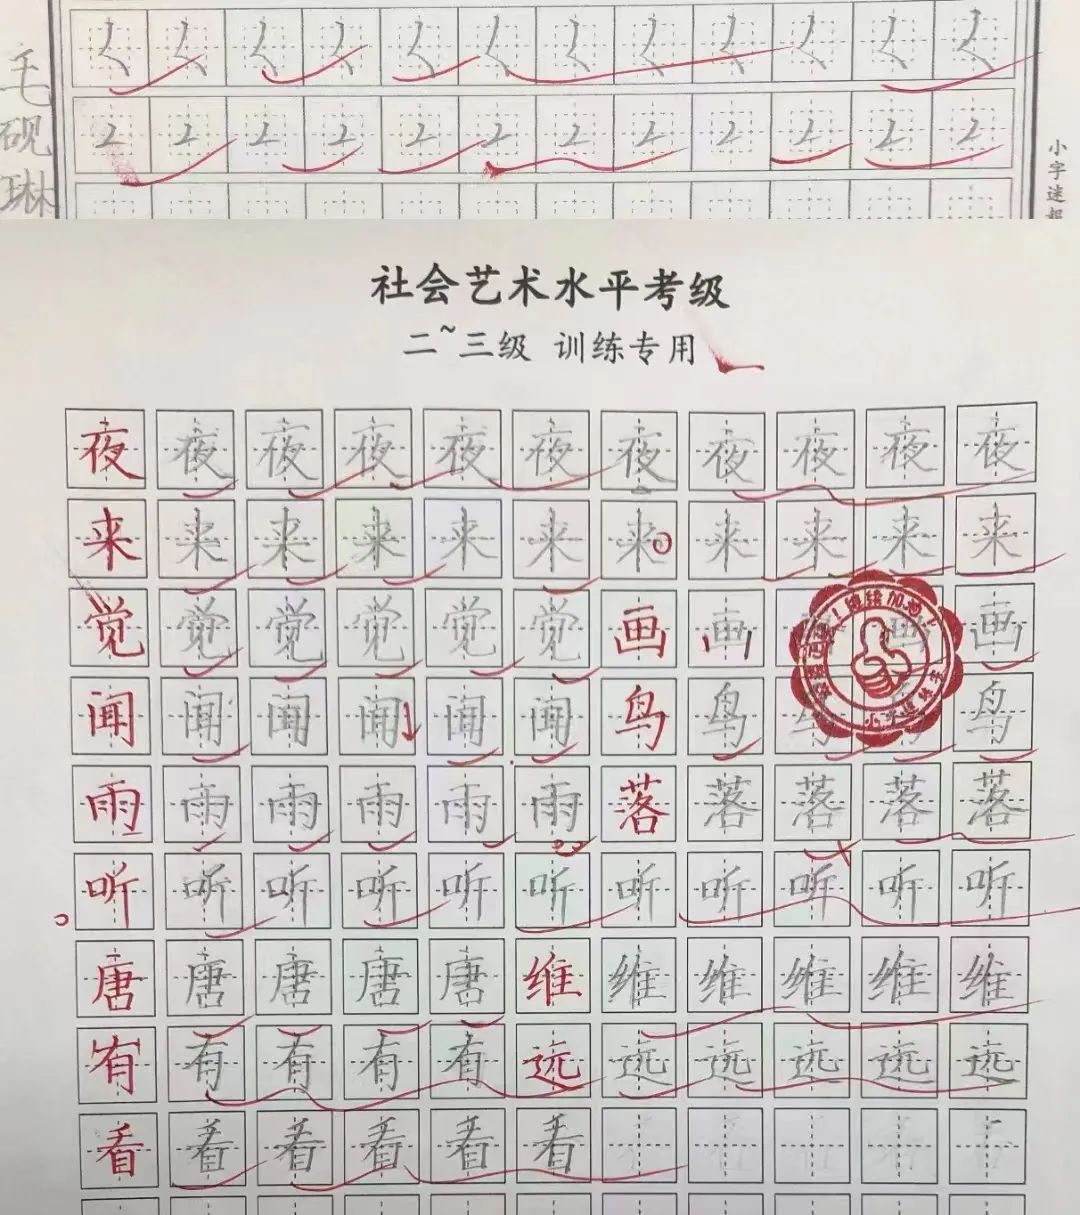 毛砚琳
小字迷
社会艺术水平考级
二~三级 训练专用
夜 夜 夜 夜 夜 夜 夜 夜 夜 夜 夜
来 来 来 来 来 来 来 来 来 来 来
觉 觉 觉 觉 觉 觉 画 画 画 画 画
闻 闻 闻 闻 闻 闻 鸟 鸟 鸟 鸟 鸟
雨 雨 雨 雨 雨 雨 落 落 落 落 落
听 听 听 听 听 听 听 听 听 听 听
唐 唐 唐 唐 唐 维 维 维 维 维 维
有 有 有 有 有 远 远 远 远 远 远
看 看 看 看 看 看